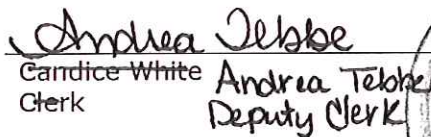 Andrea Tebbe
Candice White Andrea Tebbe
Clerk Deputy Clerk